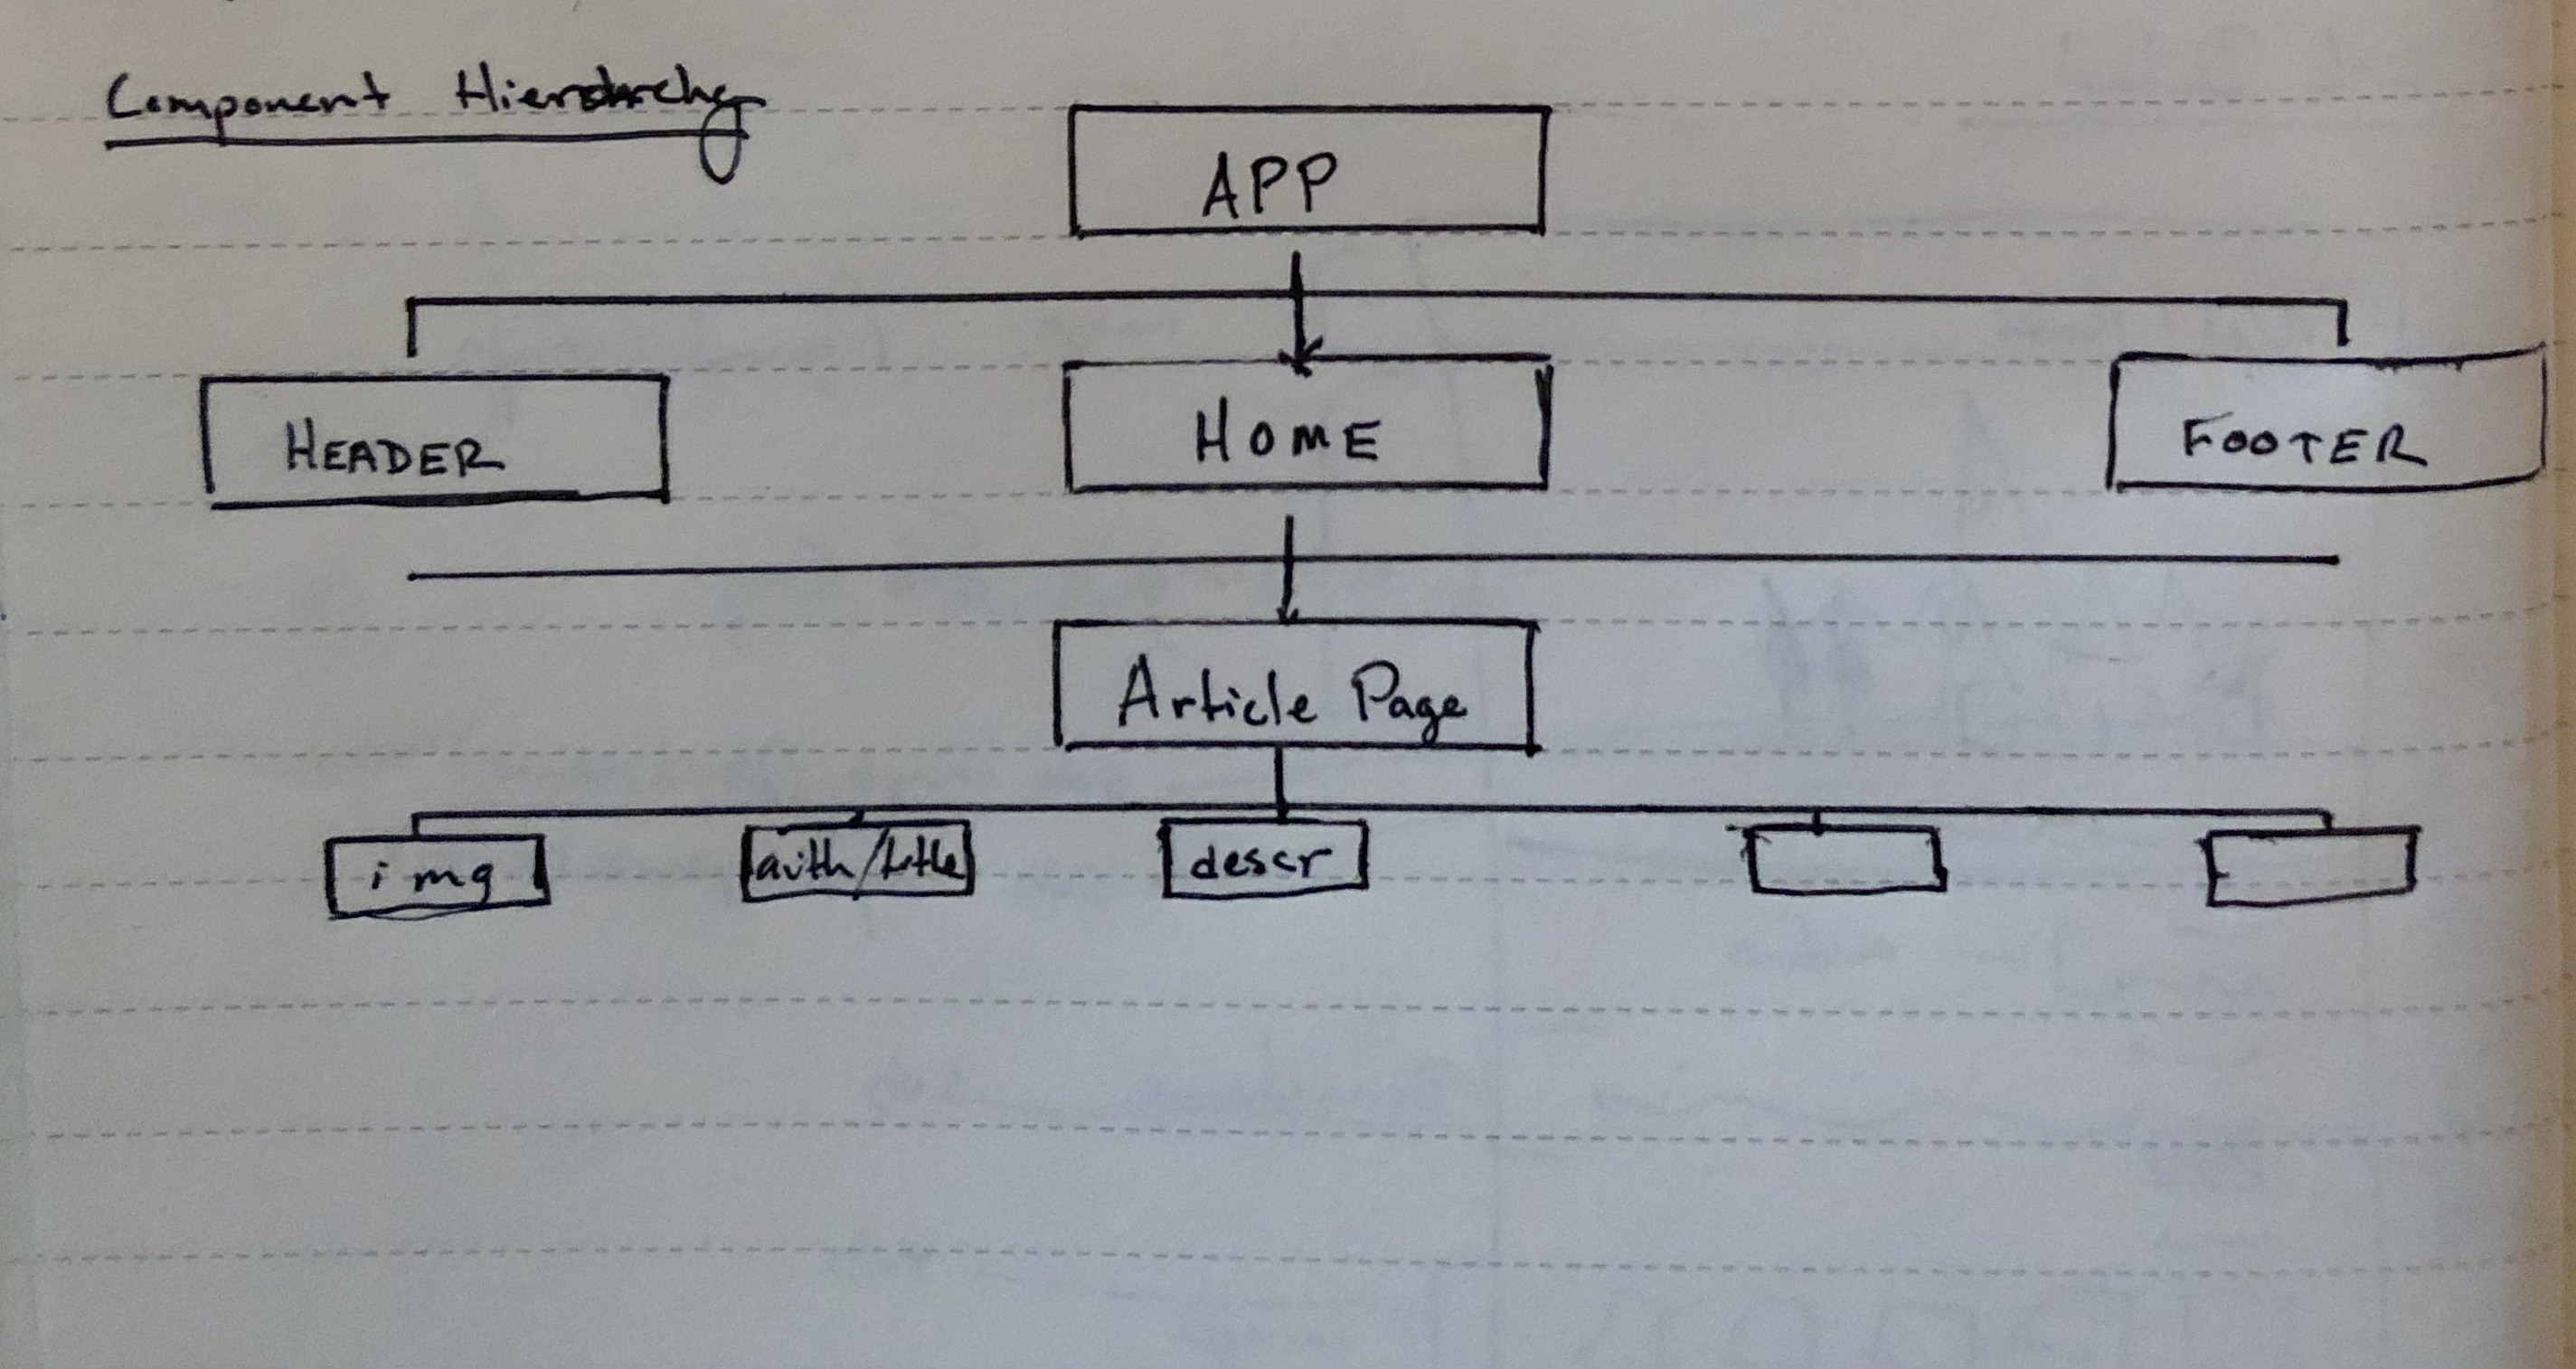 Component Hierarchy
APP
HEADER
HOME
FOOTER
Article Page
img
auth/title
descr